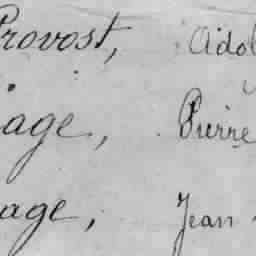 Provost, Adol
age, Pierre
age, Jean